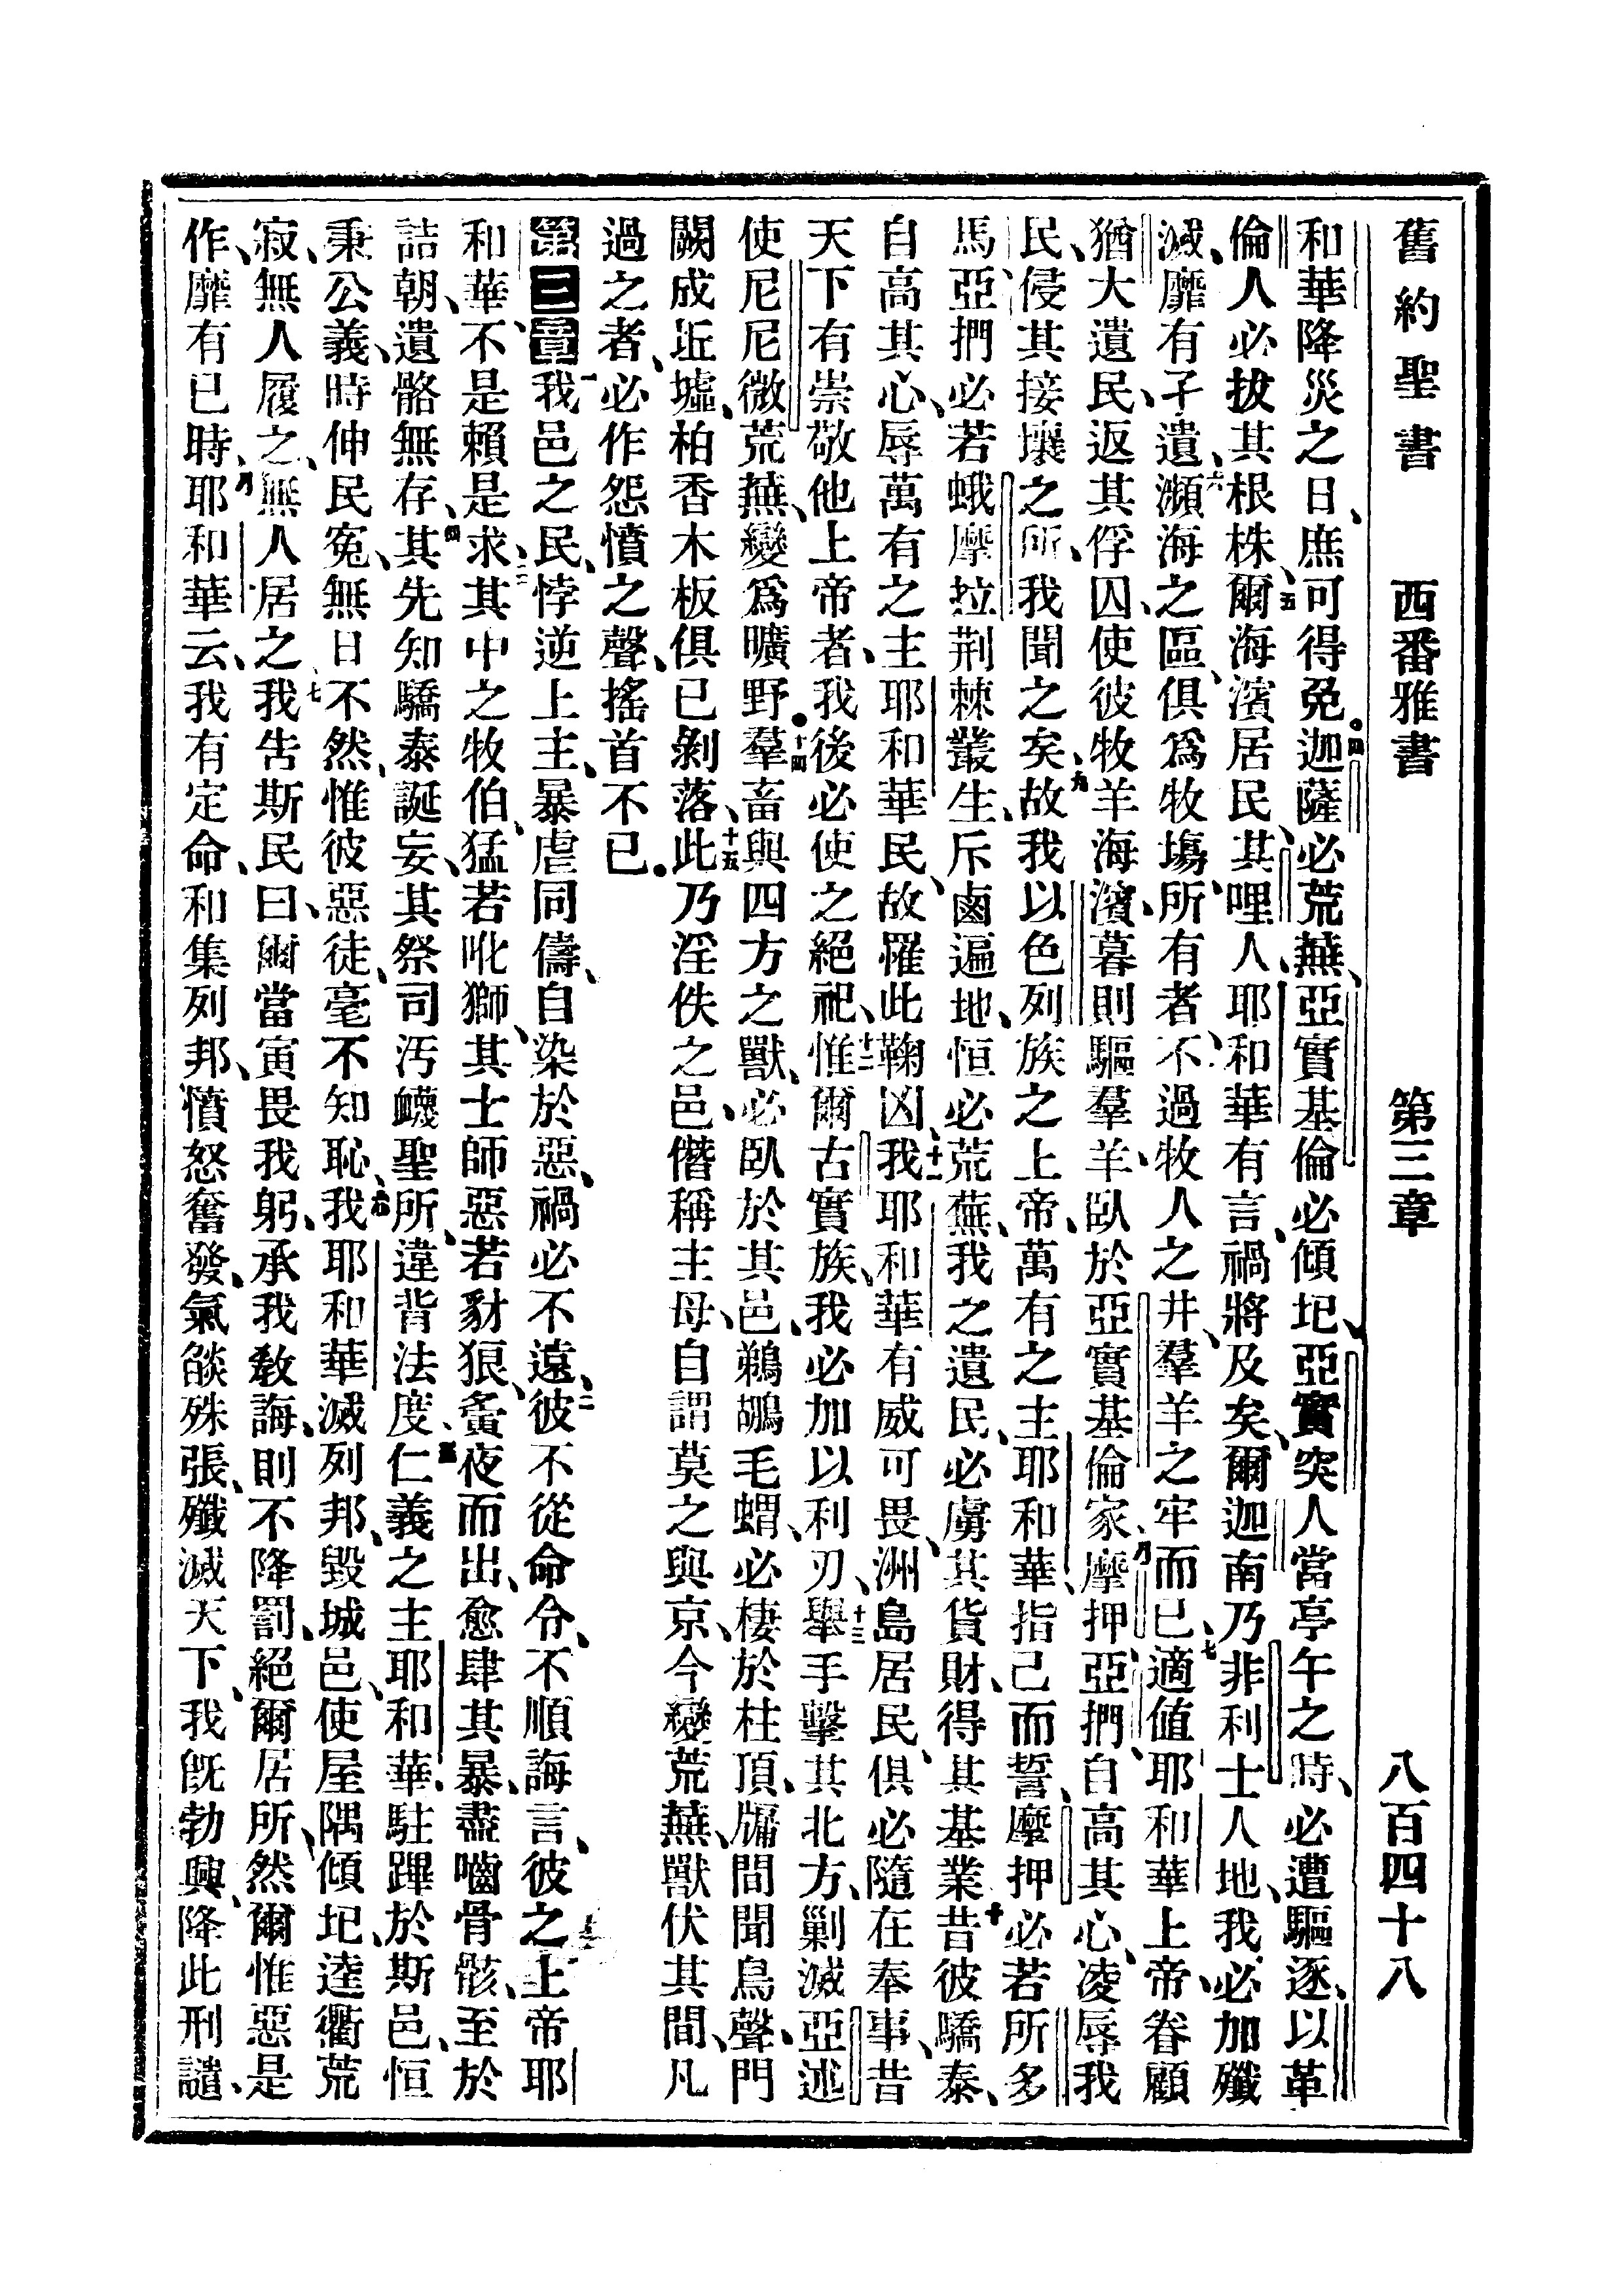 舊約聖書 西番雅書 第三章 八百四十八
和華降災之日、庶可得免。四迦薩必荒蕪、亞實基倫必傾圮、亞實突人當亭午之時、必遭驅逐、以革
倫人必拔其根株、五爾海濱居民、其哩人、耶和華有言、禍將及矣、爾迦南乃非利士人地、我必加殲
滅、靡有孑遺、六瀕海之區、俱爲牧塲、所有者、不過牧人之井、羣羊之牢而已、七適值耶和華上帝、眷顧
猶大遺民、返其俘囚、使彼牧羊海濱、暮則驅羣羊、臥於亞實基倫家、八摩押亞捫、自高其心、凌辱我
民、侵其接壤之所、我聞之矣、九故我以色列族之上帝、萬有之主耶和華、指己而誓、摩押必若所多
馬、亞捫必若蛾摩拉、荆棘叢生、斥鹵遍地、恒必荒蕪、我之遺民、必虜其貨財、得其基業、十昔彼驕泰、
自高其心、辱萬有之主耶和華民、故罹此鞠凶、十一我耶和華有威可畏、洲島居民、俱必隨在奉事、昔
天下有崇敬他上帝者、我後必使之絕祀、十二惟爾古實族、我必加以利刃、十三舉手擊其北方、剿滅亞述
使尼尼微荒蕪、變爲曠野。十四羣畜與四方之獸、必臥於其邑、鵜鶘毛蝟、必棲於柱頂、牖間聞鳥聲、門
闕成坵墟、柏香木板俱已剝落、十五此乃淫佚之邑、僭稱主母、自謂莫之與京、今變荒蕪、獸伏其間、凡
過之者、必作怨憤之聲、搖首不已。
第三章一我邑之民、悖逆上主、暴虐同儔、自染於惡、禍必不遠、二彼不從命令、不順誨言、彼之上帝耶
和華、不是賴是求、三其中之牧伯、猛若吡獅、其士師惡若豺狼、夤夜而出、愈肆其暴、盡嚙骨骸、至於
詰朝、遺骼無存、四其先知驕泰誕妄、其祭司汚衊聖所、違背法度、五仁義之主耶和華、駐蹕於斯邑、恒
秉公義、時伸民寃、無日不然、惟彼惡徒、毫不知恥、六我耶和華滅列邦、毀城邑、使屋隅傾圮、逵衢荒
寂、無人履之、無人居之、七我吿斯民曰、爾當寅畏我躬、承我敎誨、則不降罰、絕爾居所、然爾惟惡是
作、靡有已時、八耶和華云、我有定命、和集列邦、憤怒奮發、氣燄殊張、殲滅天下、我旣勃興、降此刑譴、